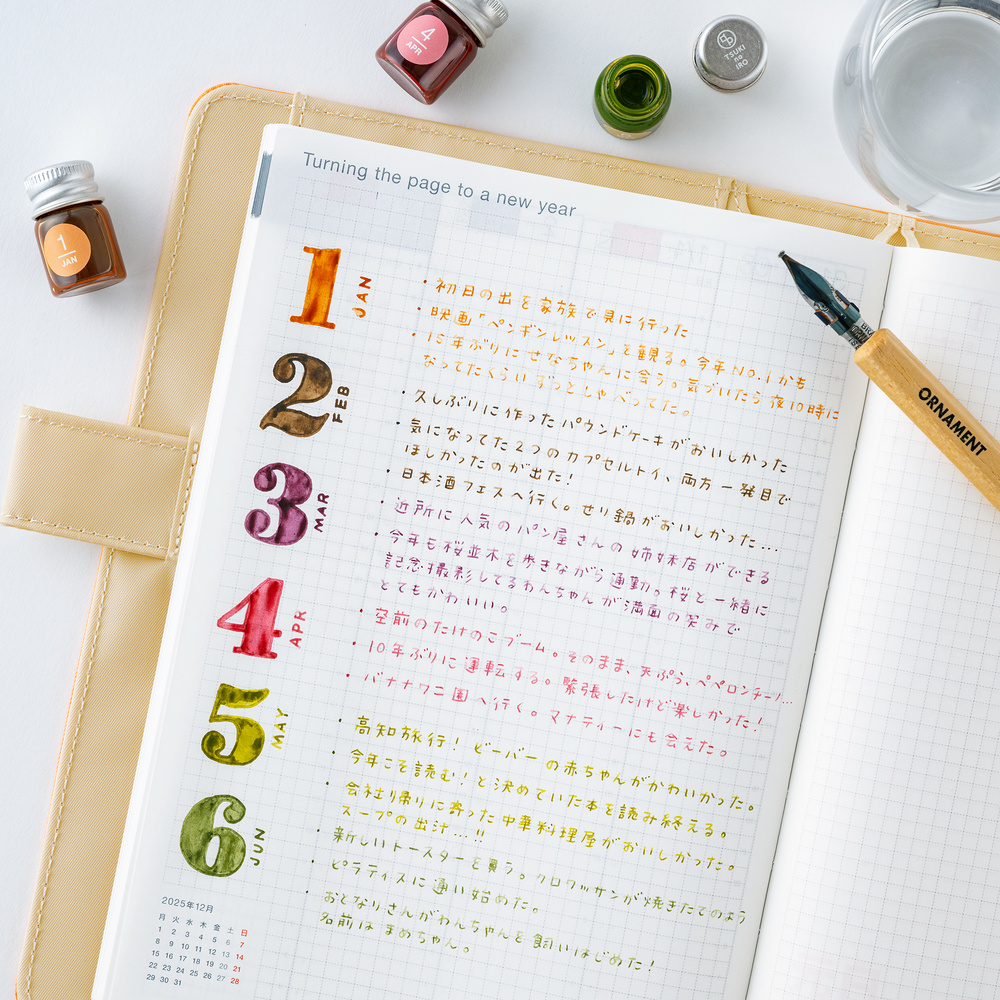 4
APR
TSUKI
no
IRO
1
JAN
Turning the page to a new year
1 JAN
・初日の出を家族で見に行った
・映画「ペンギンレッスン」を観る。今年NO.1かも
・15年ぶりにせなちゃんに会う。気づいたら夜10時に
なってたくらいずっとしゃべってた。
2 FEB
・久しぶりに作ったパウンドケーキがおいしかった
・気になってた2つのカプセルトイ、両方一発目で
ほしかったのが出た!
・日本酒フェスへ行く。せり鍋がおいしかった…
3 MAR
・近所に人気のパン屋さんの姉妹店ができる
・今年も桜並木を歩きながら通勤。桜と一緒に
記念撮影してるわんちゃんが満面の笑みで
とてもかわいい。
4 APR
・空前のたけのこブーム。そのまま、天ぷら、ペペロンチーノ…
・10年ぶりに運転する。緊張したけど楽しかった!
・バナナワニ園へ行く。マナティーにも会えた。
5 MAY
・高知旅行!ビーバーの赤ちゃんがかわいかった。
・今年こそ読む!と決めていた本を読み終える。
・会社帰りに寄った中華料理屋がおいしかった。
スープの出汁…!!
6 JUN
・新しいトースターを買う。クロワッサンが焼きたてのよう
・ピラティスに通い始めた。
・おとなりさんがわんちゃんを飼いはじめた!
名前はまめちゃん。
2025年12月
月 火 水 木 金 土 日
1 2 3 4 5 6 7
8 9 10 11 12 13 14
15 16 17 18 19 20 21
22 23 24 25 26 27 28
29 30 31
ORNAMENT